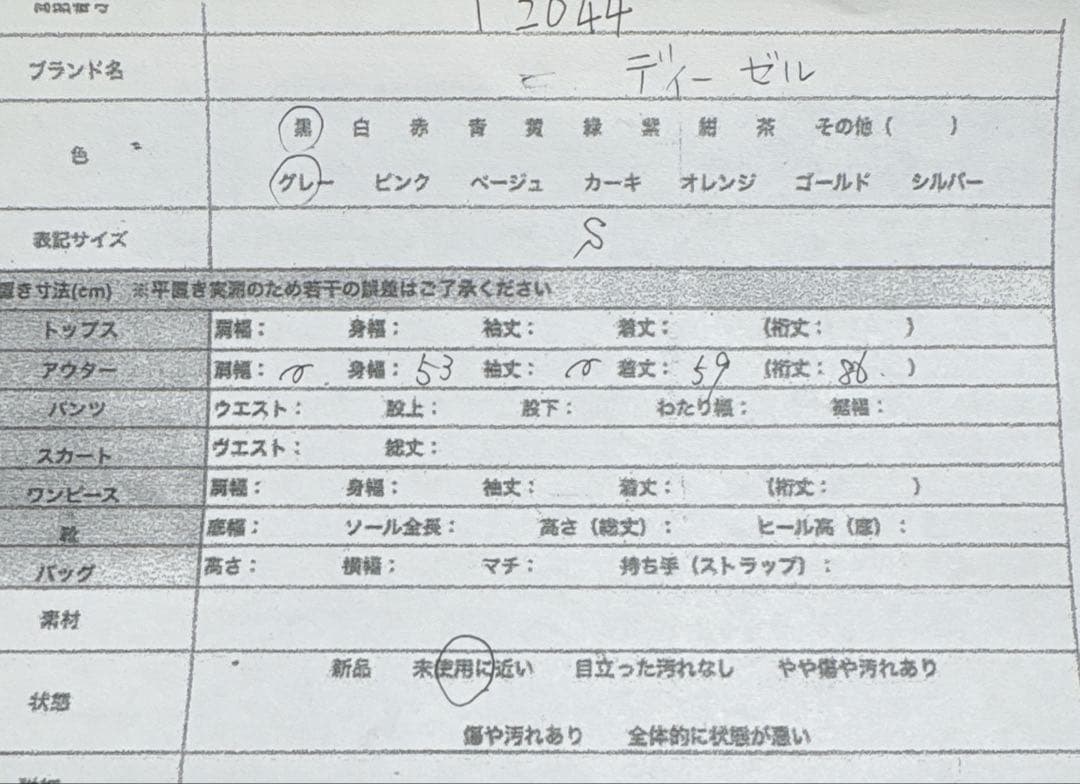 12044
ブランド名 ディーゼル
色 黒 白 赤 青 黄 緑 紫 紺 茶 その他( )
グレー ピンク ベージュ カーキ オレンジ ゴールド シルバー
表記サイズ S
置き寸法(cm) ※平置き実測のため若干の誤差はご了承ください
トップス 肩幅: 身幅: 袖丈: 着丈: (裄丈: )
アウター 肩幅: 身幅: 53 袖丈: 着丈: 59 (裄丈: 86 )
パンツ ウエスト: 股上: 股下: わたり幅: 裾幅:
スカート ウエスト: 総丈:
ワンピース 肩幅: 身幅: 袖丈: 着丈: (裄丈: )
靴 底幅: ソール全長: 高さ(総丈): ヒール高(底):
バッグ 高さ: 横幅: マチ: 持ち手(ストラップ):
素材
状態 新品 未使用に近い 目立った汚れなし やや傷や汚れあり
傷や汚れあり 全体的に状態が悪い